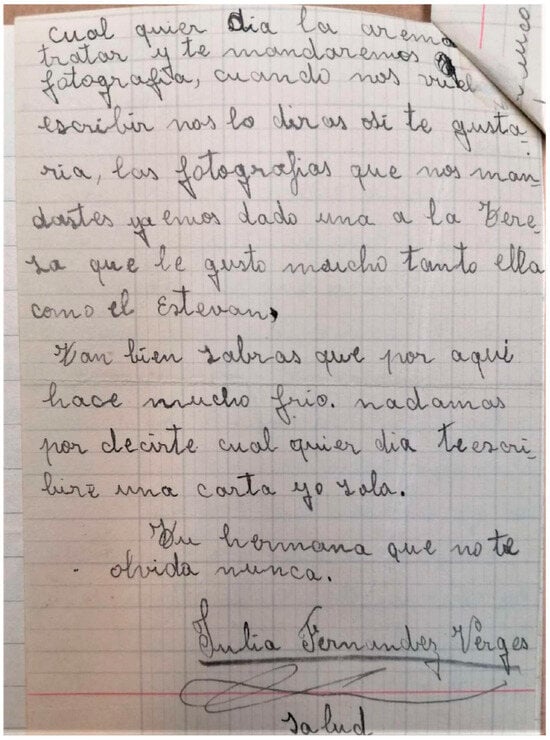 cual quier dia la aremo
tratar y te mandaremos
fotografia, cuando nos
escribir nos lo diras osi te gusta-
ria, las fotografias que nos man-
dastes ya emos dado una a la Tere-
sa que le gusto mucho tanto ella
como el Estevan,
Tan bien sabras que por aqui
hace mucho frio. nadamas
por decirte cual quier dia te escri-
bire una carta yo sola.
Tu hermana que no te
olvida nunca.
Julia Fernandez Verges
salud